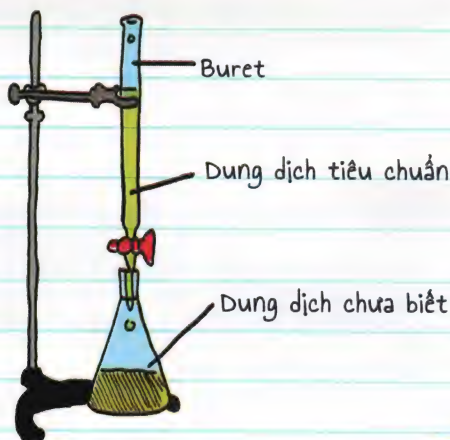 Buret
Dung dịch tiêu chuẩn
Dung dịch chưa biết